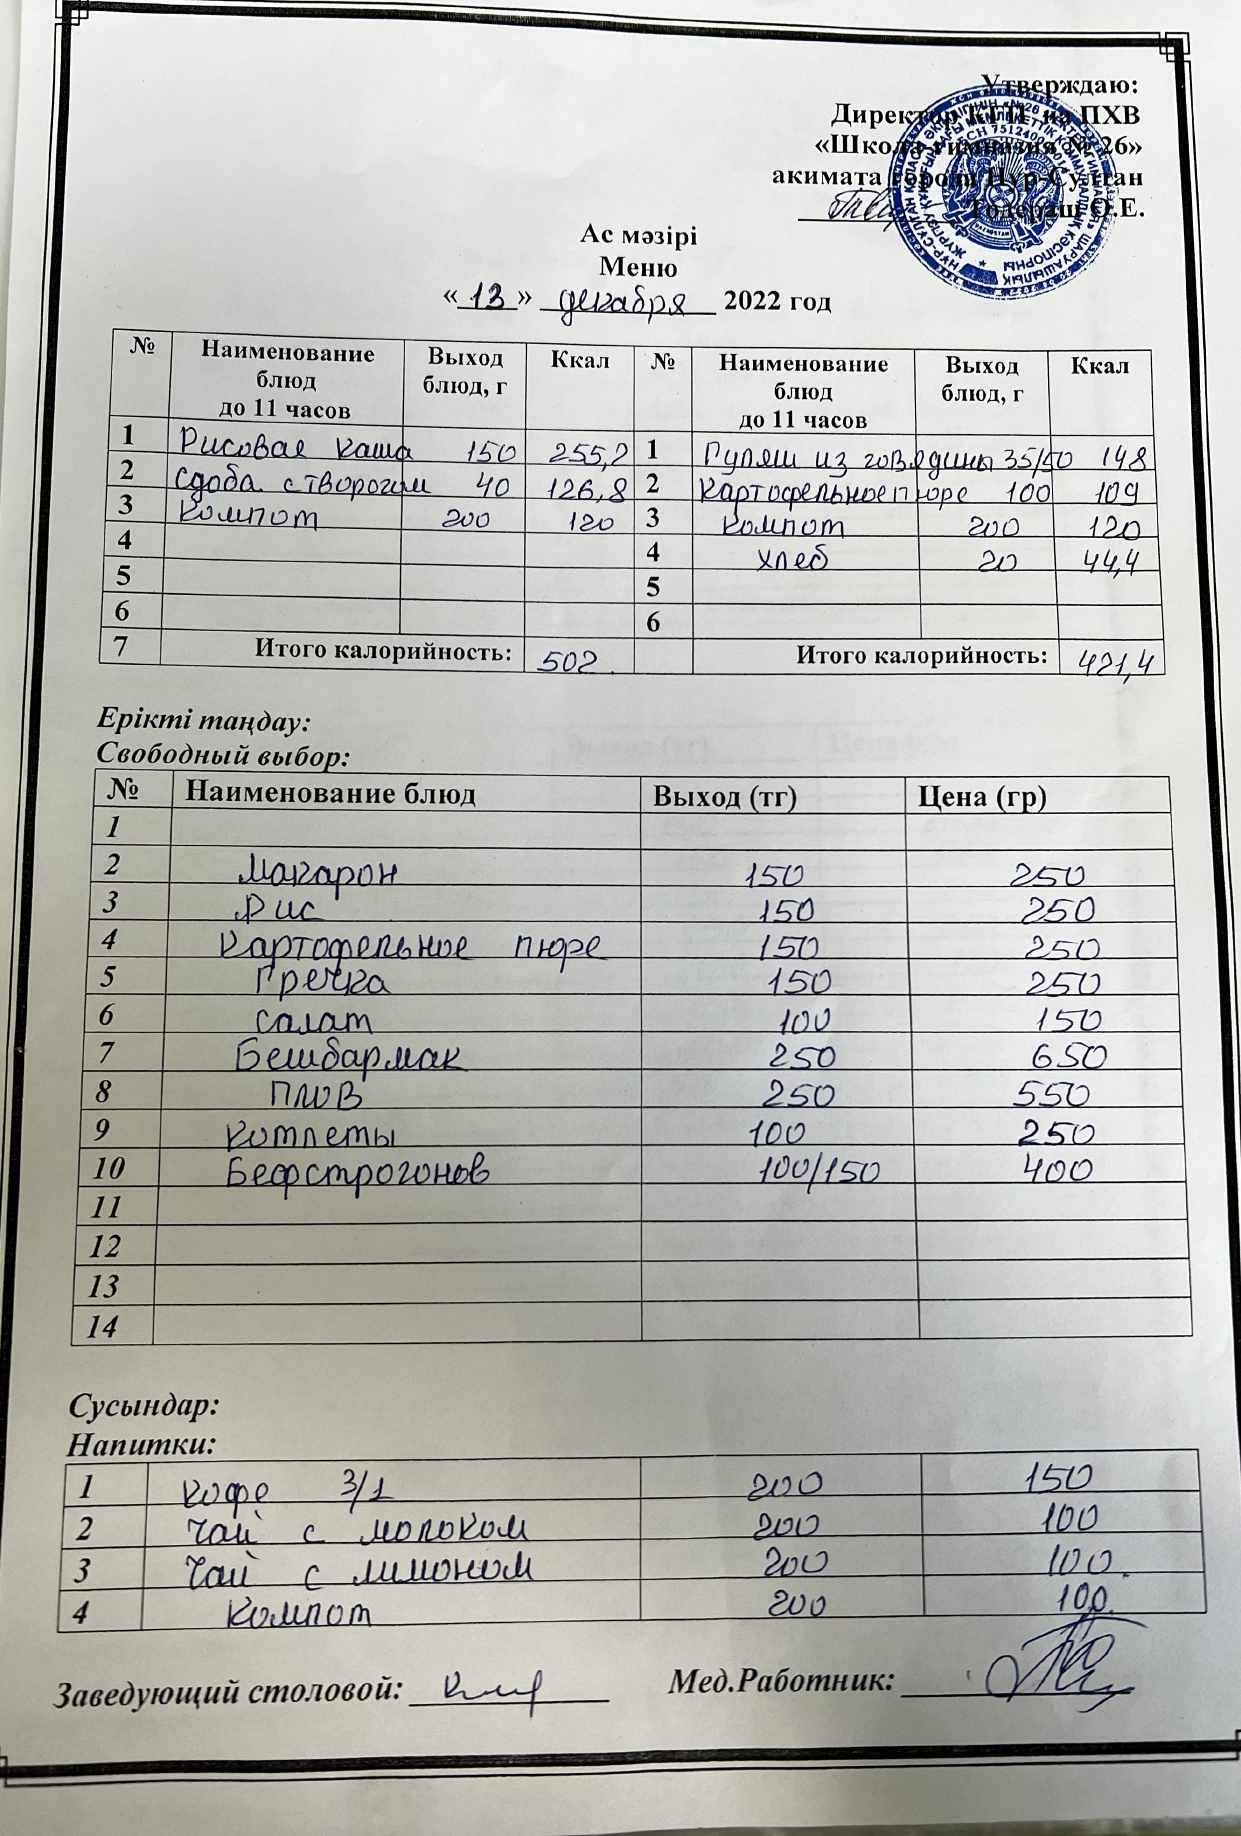 Утверждаю:
Директор КГП на ПХВ
«Школа-гимназия № 26»
акимата города Нур-Султан
Тодераш О.Е.
Ас мәзірі
Меню
«13» декабря 2022 год
№ Наименование блюд до 11 часов Выход блюд, г Ккал № Наименование блюд до 11 часов Выход блюд, г Ккал
1 Рисовая каша 150 255,2 1 Гуляш из говядины 35/50 148
2 Сдоба с творогом 40 126,8 2 Картофельное пюре 100 109
3 Компот 200 120 3 Компот 200 120
4 4 хлеб 20 44,4
5 5
6 6
7 Итого калорийность: 502. Итого калорийность: 421,4
Ерікті таңдау:
Свободный выбор:
№ Наименование блюд Выход (тг) Цена (гр)
1
2 Макарон 150 250
3 Рис 150 250
4 Картофельное пюре 150 250
5 Гречка 150 250
6 Салат 100 150
7 Бешбармак 250 650
8 Плов 250 550
9 Котлеты 100 250
10 Бефстрогонов 100/150 400
11
12
13
14
Сусындар:
Напитки:
1 Кофе 3/1 200 150
2 Чай с молоком 200 100
3 Чай с лимоном 200 100.
4 Компот 200 100.
Заведующий столовой: Мед.Работник: